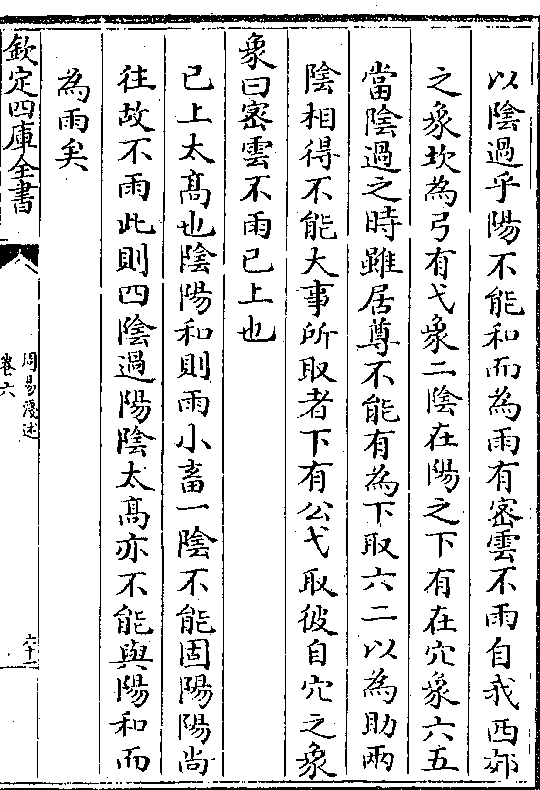 以陰過乎陽不能和而為雨有密雲不雨自我西郊
之象坎為弓有弋象二陰在陽之下有在穴象六五
當陰過之時雖居尊不能有為下取六二以為助兩
陰相得不能大事所取者下有公弋取彼自穴之象
象曰密雲不雨已上也
已上太髙也陰陽和則雨小畜一陰不能固陽陽尚
往故不雨此則四陰過陽陰太髙亦不能與陽和而
為雨矣
欽定四庫全書
周易淺述
卷六
六十二